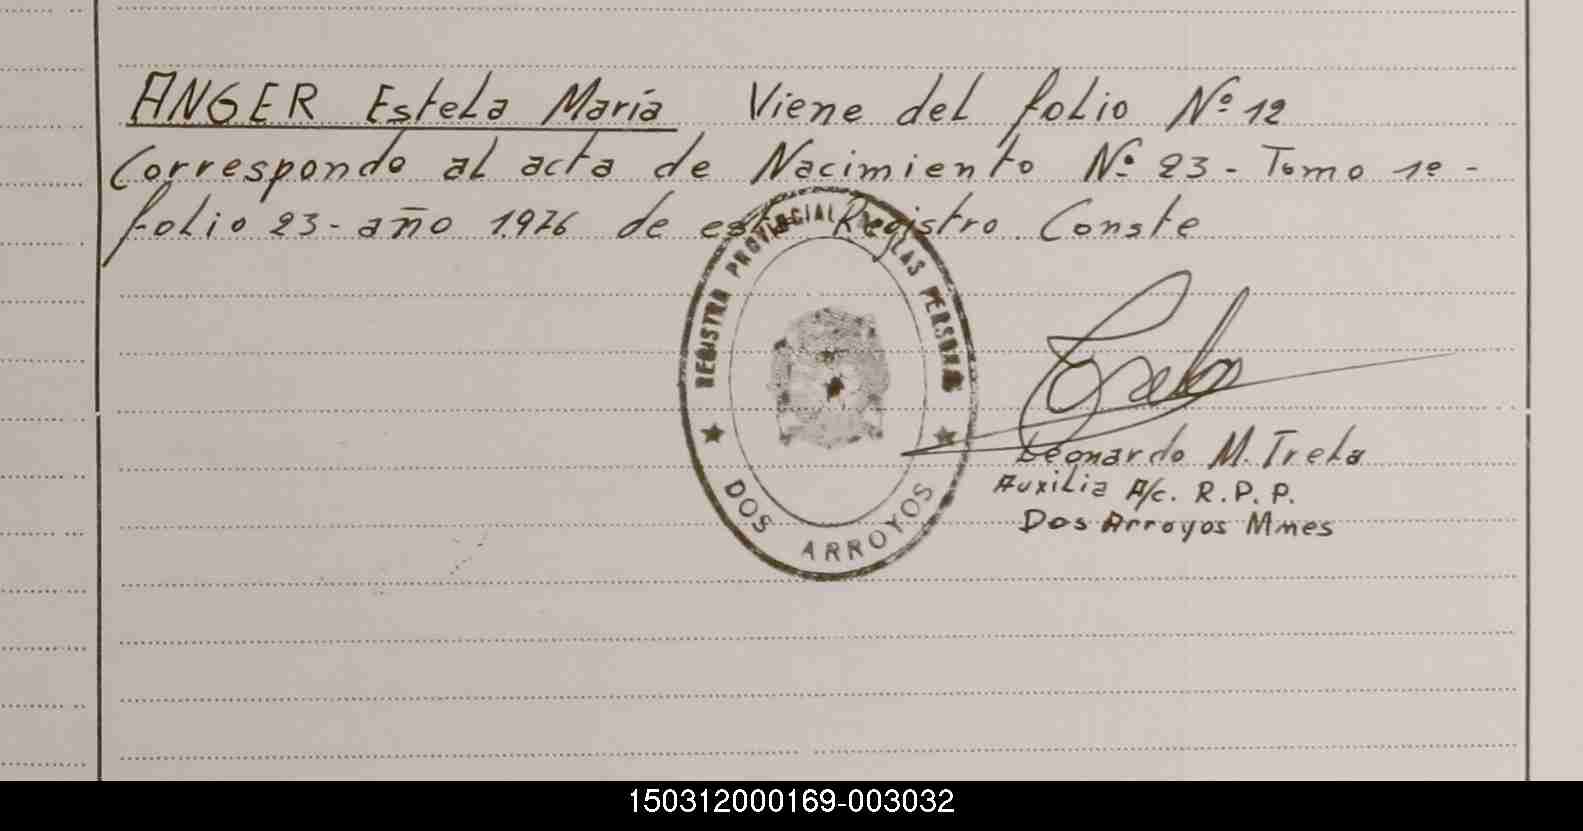 ANGER Estela María Viene del folio Nº 12
Correspondo al acta de Nacimiento Nº 23 - Tomo 1º -
folio 23 - año 1976 de este Registro. Conste
REGISTRO PROVINCIAL DE LAS PERSONAS
DOS ARROYOS
Leonardo M. Trela
Auxilia A/c. R.P.P.
Dos Arroyos Mnes
150312000169-003032